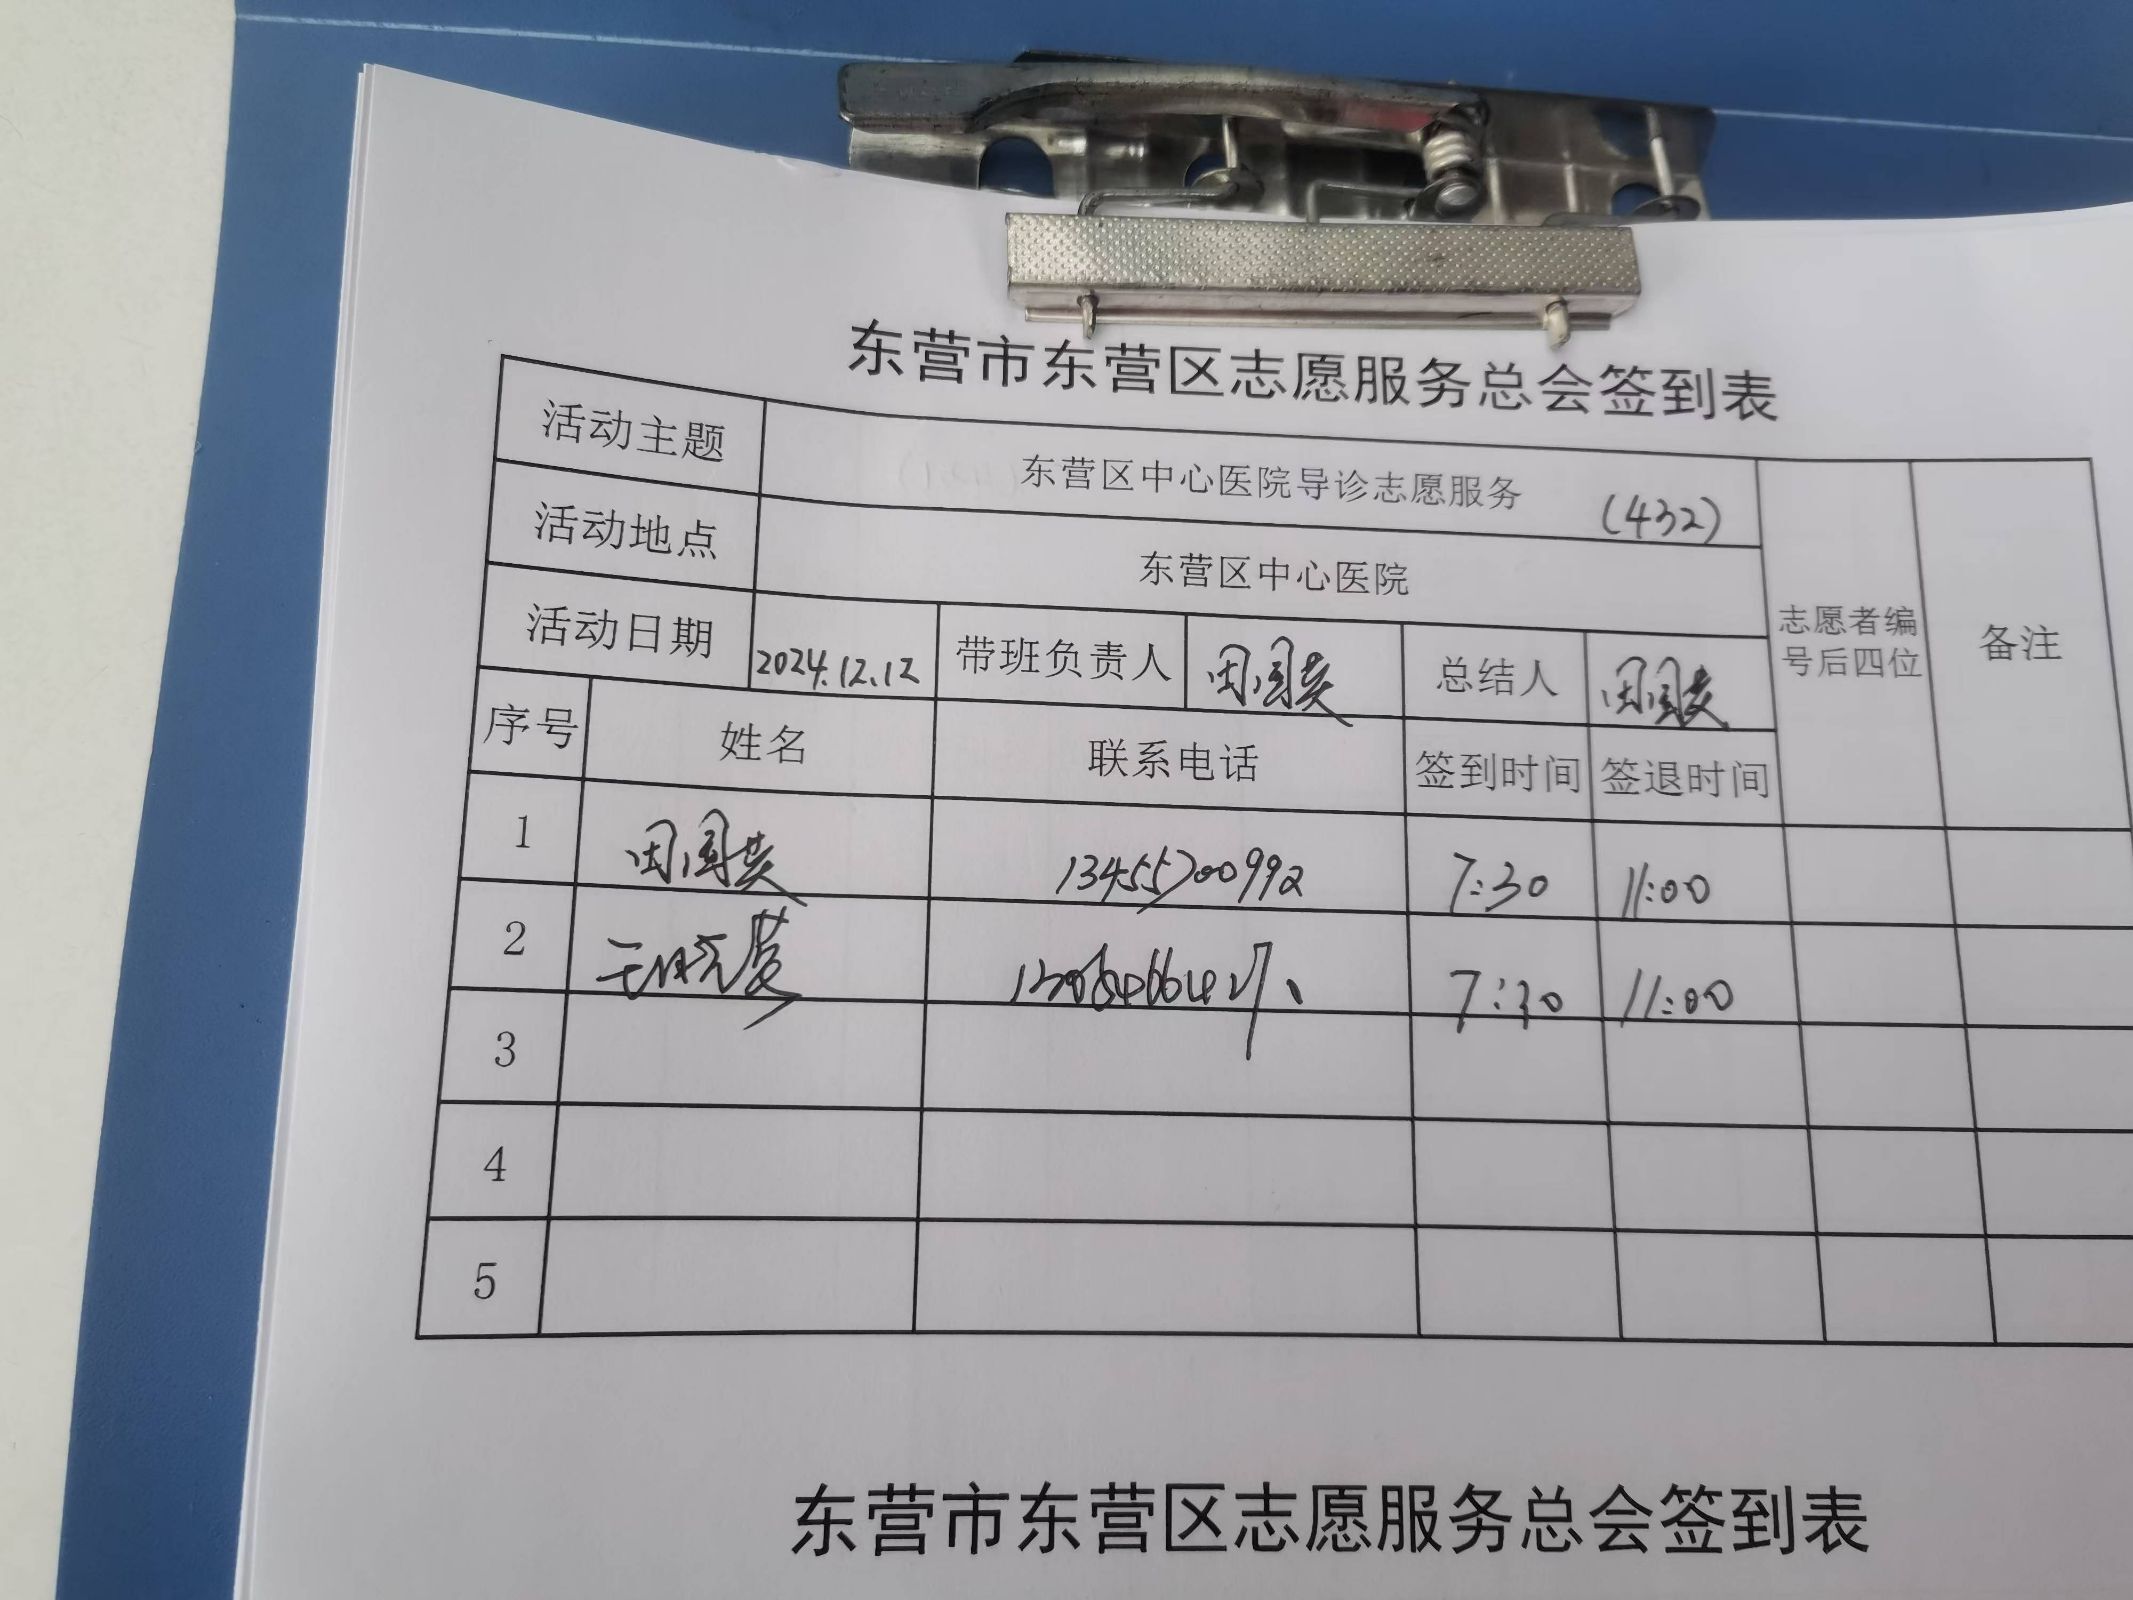 东营市东营区志愿服务总会签到表
活动主题 东营区中心医院导诊志愿服务 (432) 志愿者编号后四位 备注
活动地点 东营区中心医院
活动日期 2024.12.12 带班负责人 田国英 总结人 田国英
序号 姓名 联系电话 签到时间 签退时间
1 田国英 13455700992 7:30 11:00
2 7:30 11:00
3
4
5
东营市东营区志愿服务总会签到表